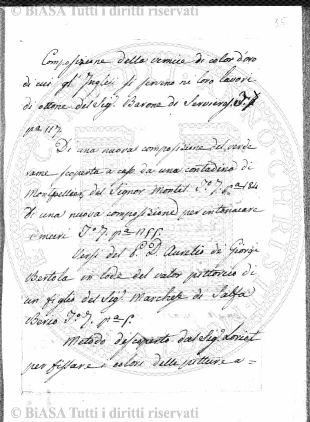 © BiASA Tutti i diritti riservati
35
Composizione della vernice di color d'oro
di cui gl' Inglesi si servono ne loro lavori
di ottone del Sig. Barone de Servieres
pa 117.
Di una nuova composizione del verde
rame scoperta a caso da una contadina di
Montpellier, del Signor Montet To 7. pa 124
Di una nuova composizione per intonacare
i muri To 7. pa 155.
Versi del Po. D. Aurelio de Giorgi
Bertola in lode del valor pittorico di
un figlio del Sigr Marchese di Salsa
Berio To 7. pa 5.
Metodo discoperto dal Sigr Loriot
per fissare i colori delle pitture a=
© BiASA Tutti i diritti riservati